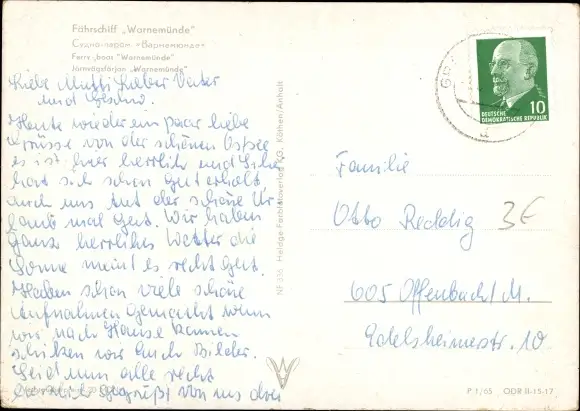 Fährschiff „Warnemünde"
Судно-паром «Варнемюнде»
Ferry „boat "Warnemünde"
Järnvägsfärjan „Warnemünde"
Liebe Mutti Lieber Vater
und
Heute wieder ein paar liebe
Grüsse von der schönen Ostsee
es ist hier herrlich und
hat sich schon gut erholt
auch uns tut der schöne Ur
laub mal gut. Wir haben
ganz herrliches Wetter die
Sonne meint es recht gut.
Haben schon viele schöne
Aufnahmen gemacht wenn
wir nach Hause kommen
schicken wir Euch Bilder.
Seid nun alle recht
herzlich gegrüßt von uns drei
NF 336 Heldge-Fachbuchverlag KG, Köthen/Anhalt
10
DEUTSCHE
DEMOKRATISCHE REPUBLIK
Familie
Otto Reddig
3€
605 Offenbach/M.
Edelsheimerstr. 10
P 1/65 ODR II-15-17